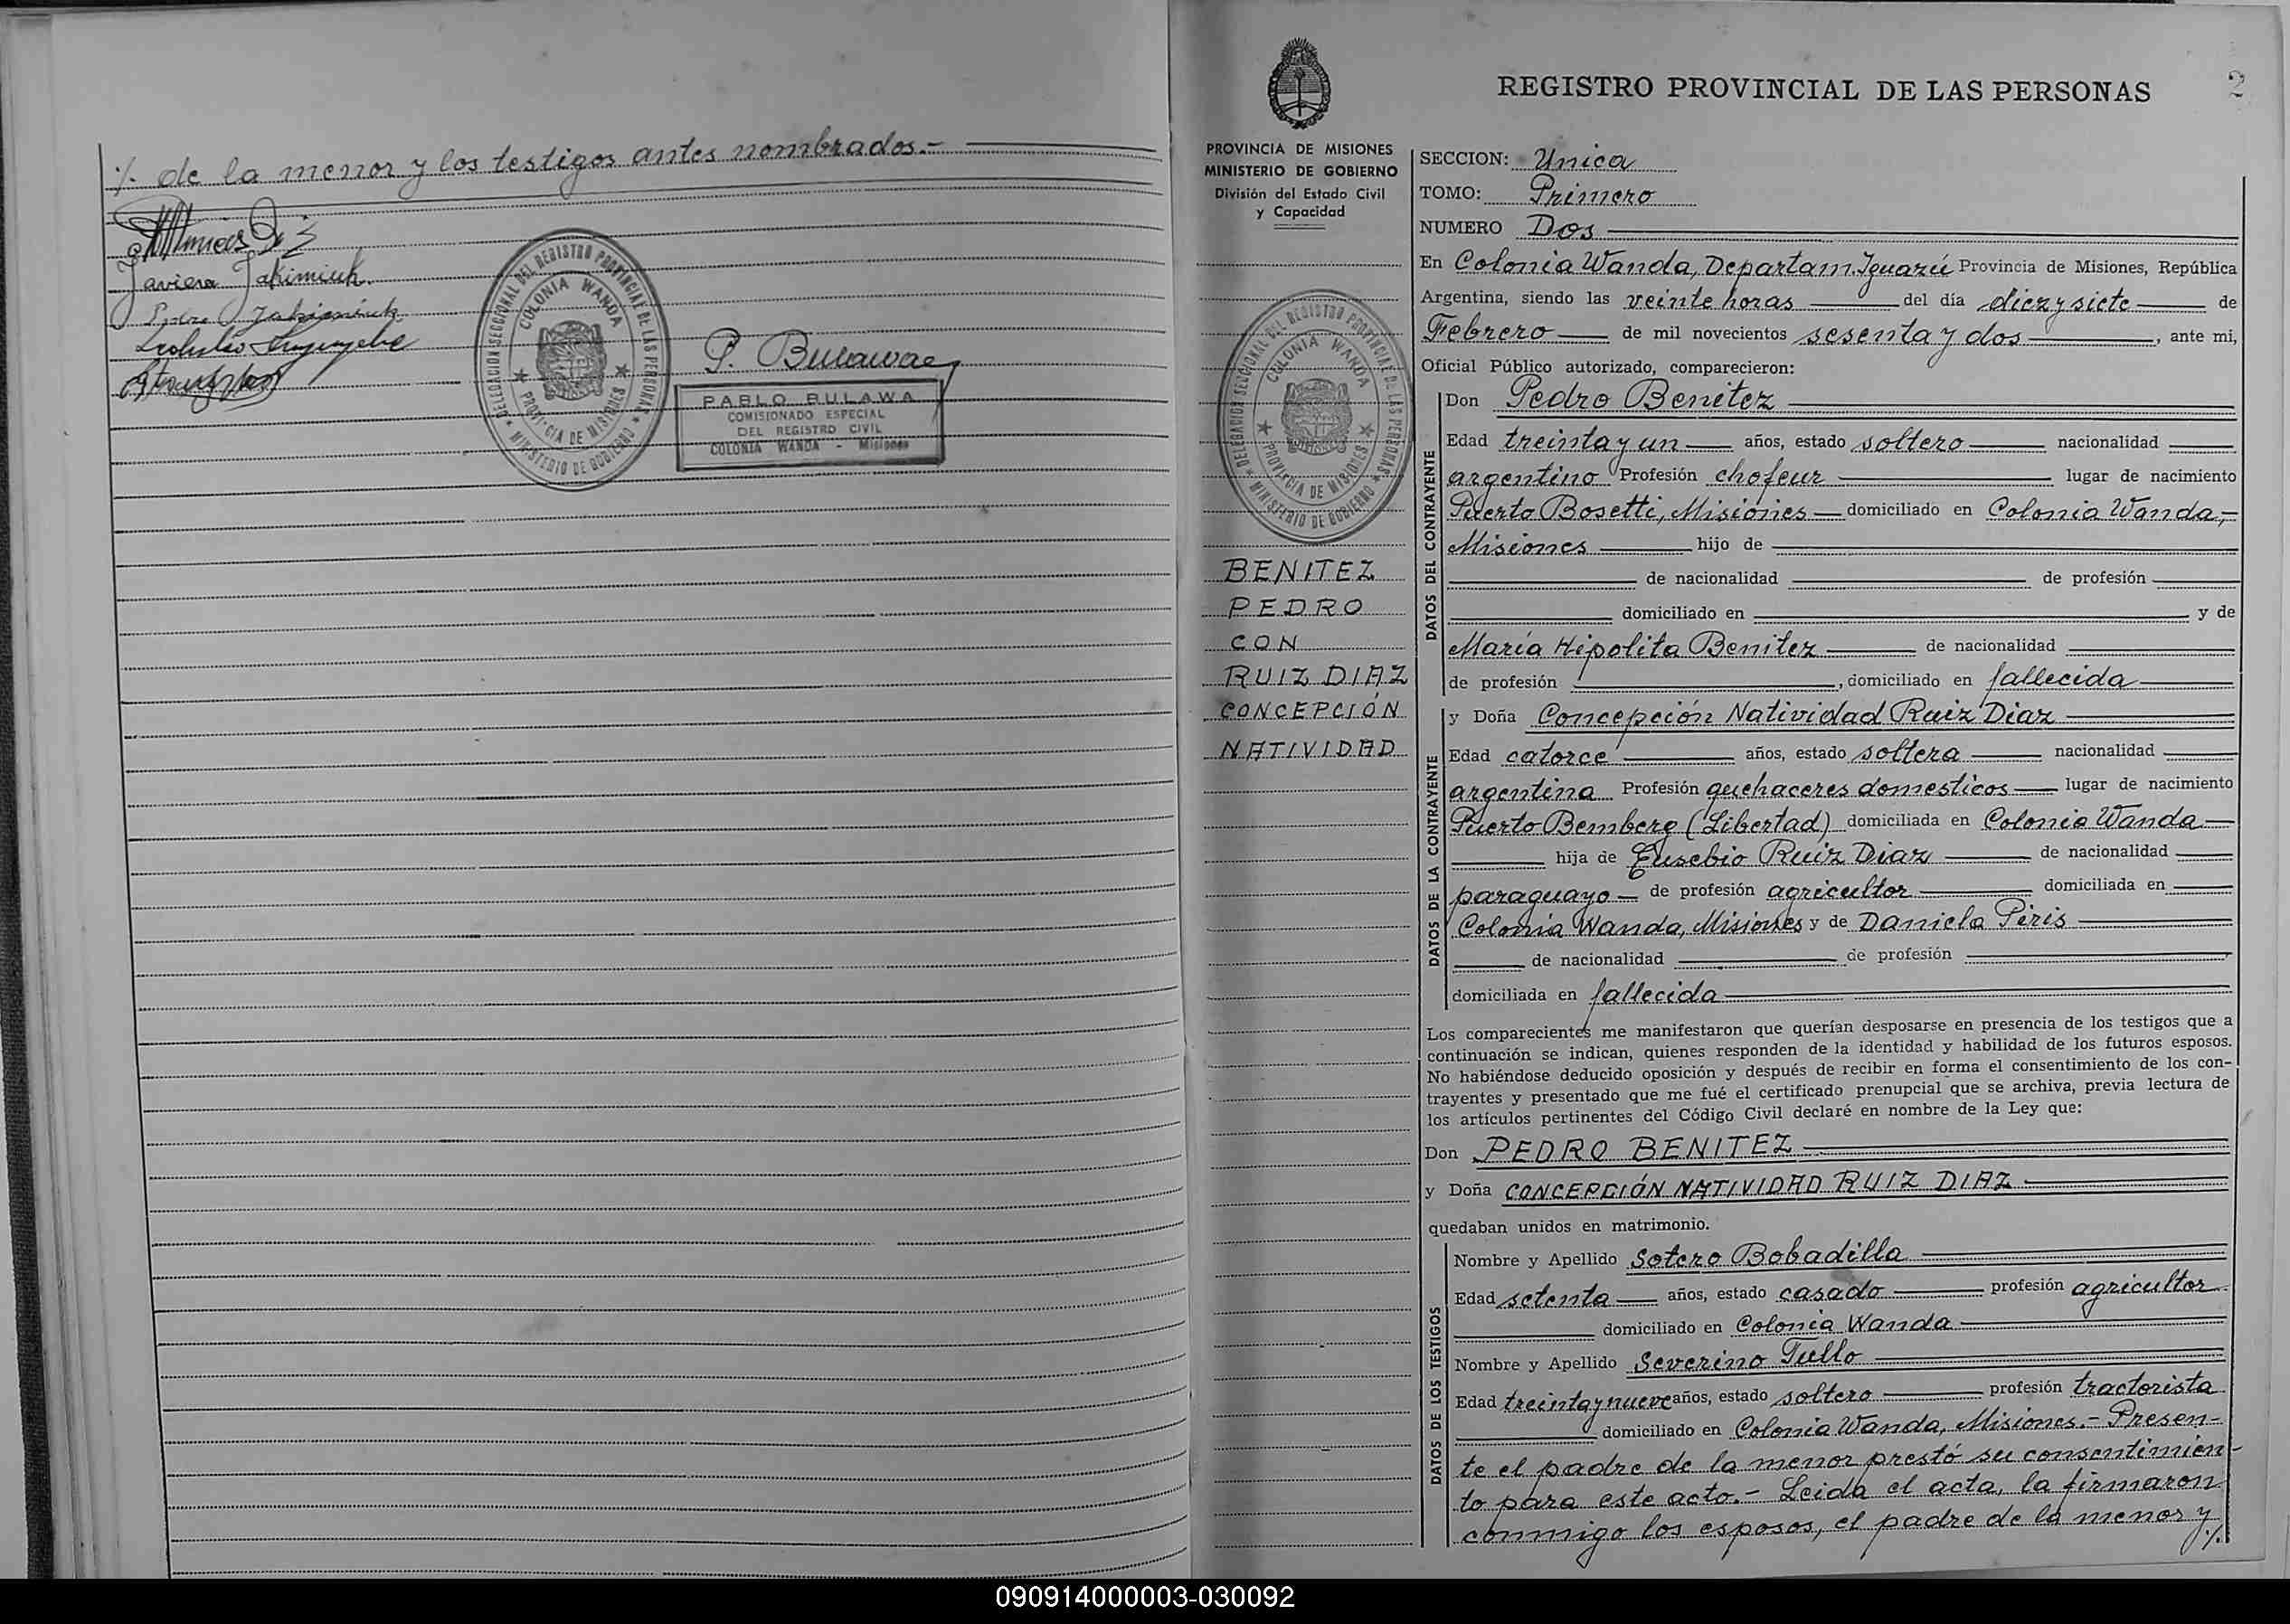 ·/. de la menor y los testigos antes nombrados.-
Javiera Jakimiuk.
P. Bulawa
DELEGACION SECCIONAL DEL REGISTRO PROVINCIAL DE LAS PERSONAS
COLONIA WANDA
PROVINCIA DE MISIONES
MINISTERIO DE GOBIERNO
PABLO BULAWA
COMISIONADO ESPECIAL
DEL REGISTRO CIVIL
COLONIA WANDA - Misiones
REGISTRO PROVINCIAL DE LAS PERSONAS
2
PROVINCIA DE MISIONES
MINISTERIO DE GOBIERNO
División del Estado Civil
y Capacidad
DELEGACION SECCIONAL DEL REGISTRO PROVINCIAL DE LAS PERSONAS
COLONIA WANDA
PROVINCIA DE MISIONES
MINISTERIO DE GOBIERNO
BENITEZ
PEDRO
CON
RUIZ DIAZ
CONCEPCIÓN
NATIVIDAD
SECCION: Unica
TOMO: Primero
NUMERO Dos
En Colonia Wanda, Departam. Iguazú Provincia de Misiones, República
Argentina, siendo las veinte horas del día diez y siete de
Febrero de mil novecientos sesenta y dos, ante mi,
Oficial Público autorizado, comparecieron:
DATOS DEL CONTRAYENTE
Don Pedro Benitez
Edad treinta y un años, estado soltero nacionalidad
argentino Profesión chofeur lugar de nacimiento
Puerto Bosetti, Misiones domiciliado en Colonia Wanda,-
Misiones hijo de
de nacionalidad de profesión
domiciliado en y de
María Hipolita Benitez de nacionalidad
de profesión , domiciliado en fallecida
DATOS DE LA CONTRAYENTE
y Doña Concepción Natividad Ruiz Diaz
Edad catorce años, estado soltera nacionalidad
argentina Profesión quehaceres domesticos lugar de nacimiento
Puerto Bemberg (Libertad) domiciliada en Colonia Wanda
hija de Eusebio Ruiz Diaz de nacionalidad
paraguayo de profesión agricultor domiciliada en
Colonia Wanda, Misiones y de Daniela Piris
de nacionalidad de profesión
domiciliada en fallecida
Los comparecientes me manifestaron que querían desposarse en presencia de los testigos que a
continuación se indican, quienes responden de la identidad y habilidad de los futuros esposos.
No habiéndose deducido oposición y después de recibir en forma el consentimiento de los con-
trayentes y presentado que me fué el certificado prenupcial que se archiva, previa lectura de
los artículos pertinentes del Código Civil declaré en nombre de la Ley que:
Don PEDRO BENITEZ
y Doña CONCEPCIÓN NATIVIDAD RUIZ DIAZ
quedaban unidos en matrimonio.
DATOS DE LOS TESTIGOS
Nombre y Apellido Sotero Bobadilla
Edad setenta años, estado casado profesión agricultor
domiciliado en Colonia Wanda
Nombre y Apellido Severino Tullo
Edad treinta y nueve años, estado soltero profesión tractorista
domiciliado en Colonia Wanda, Misiones.- Presen-
te el padre de la menor prestó su consentimien-
to para este acto.- Leida el acta, la firmaron
conmigo los esposos, el padre de la menor y ·/.
090914000003-030092